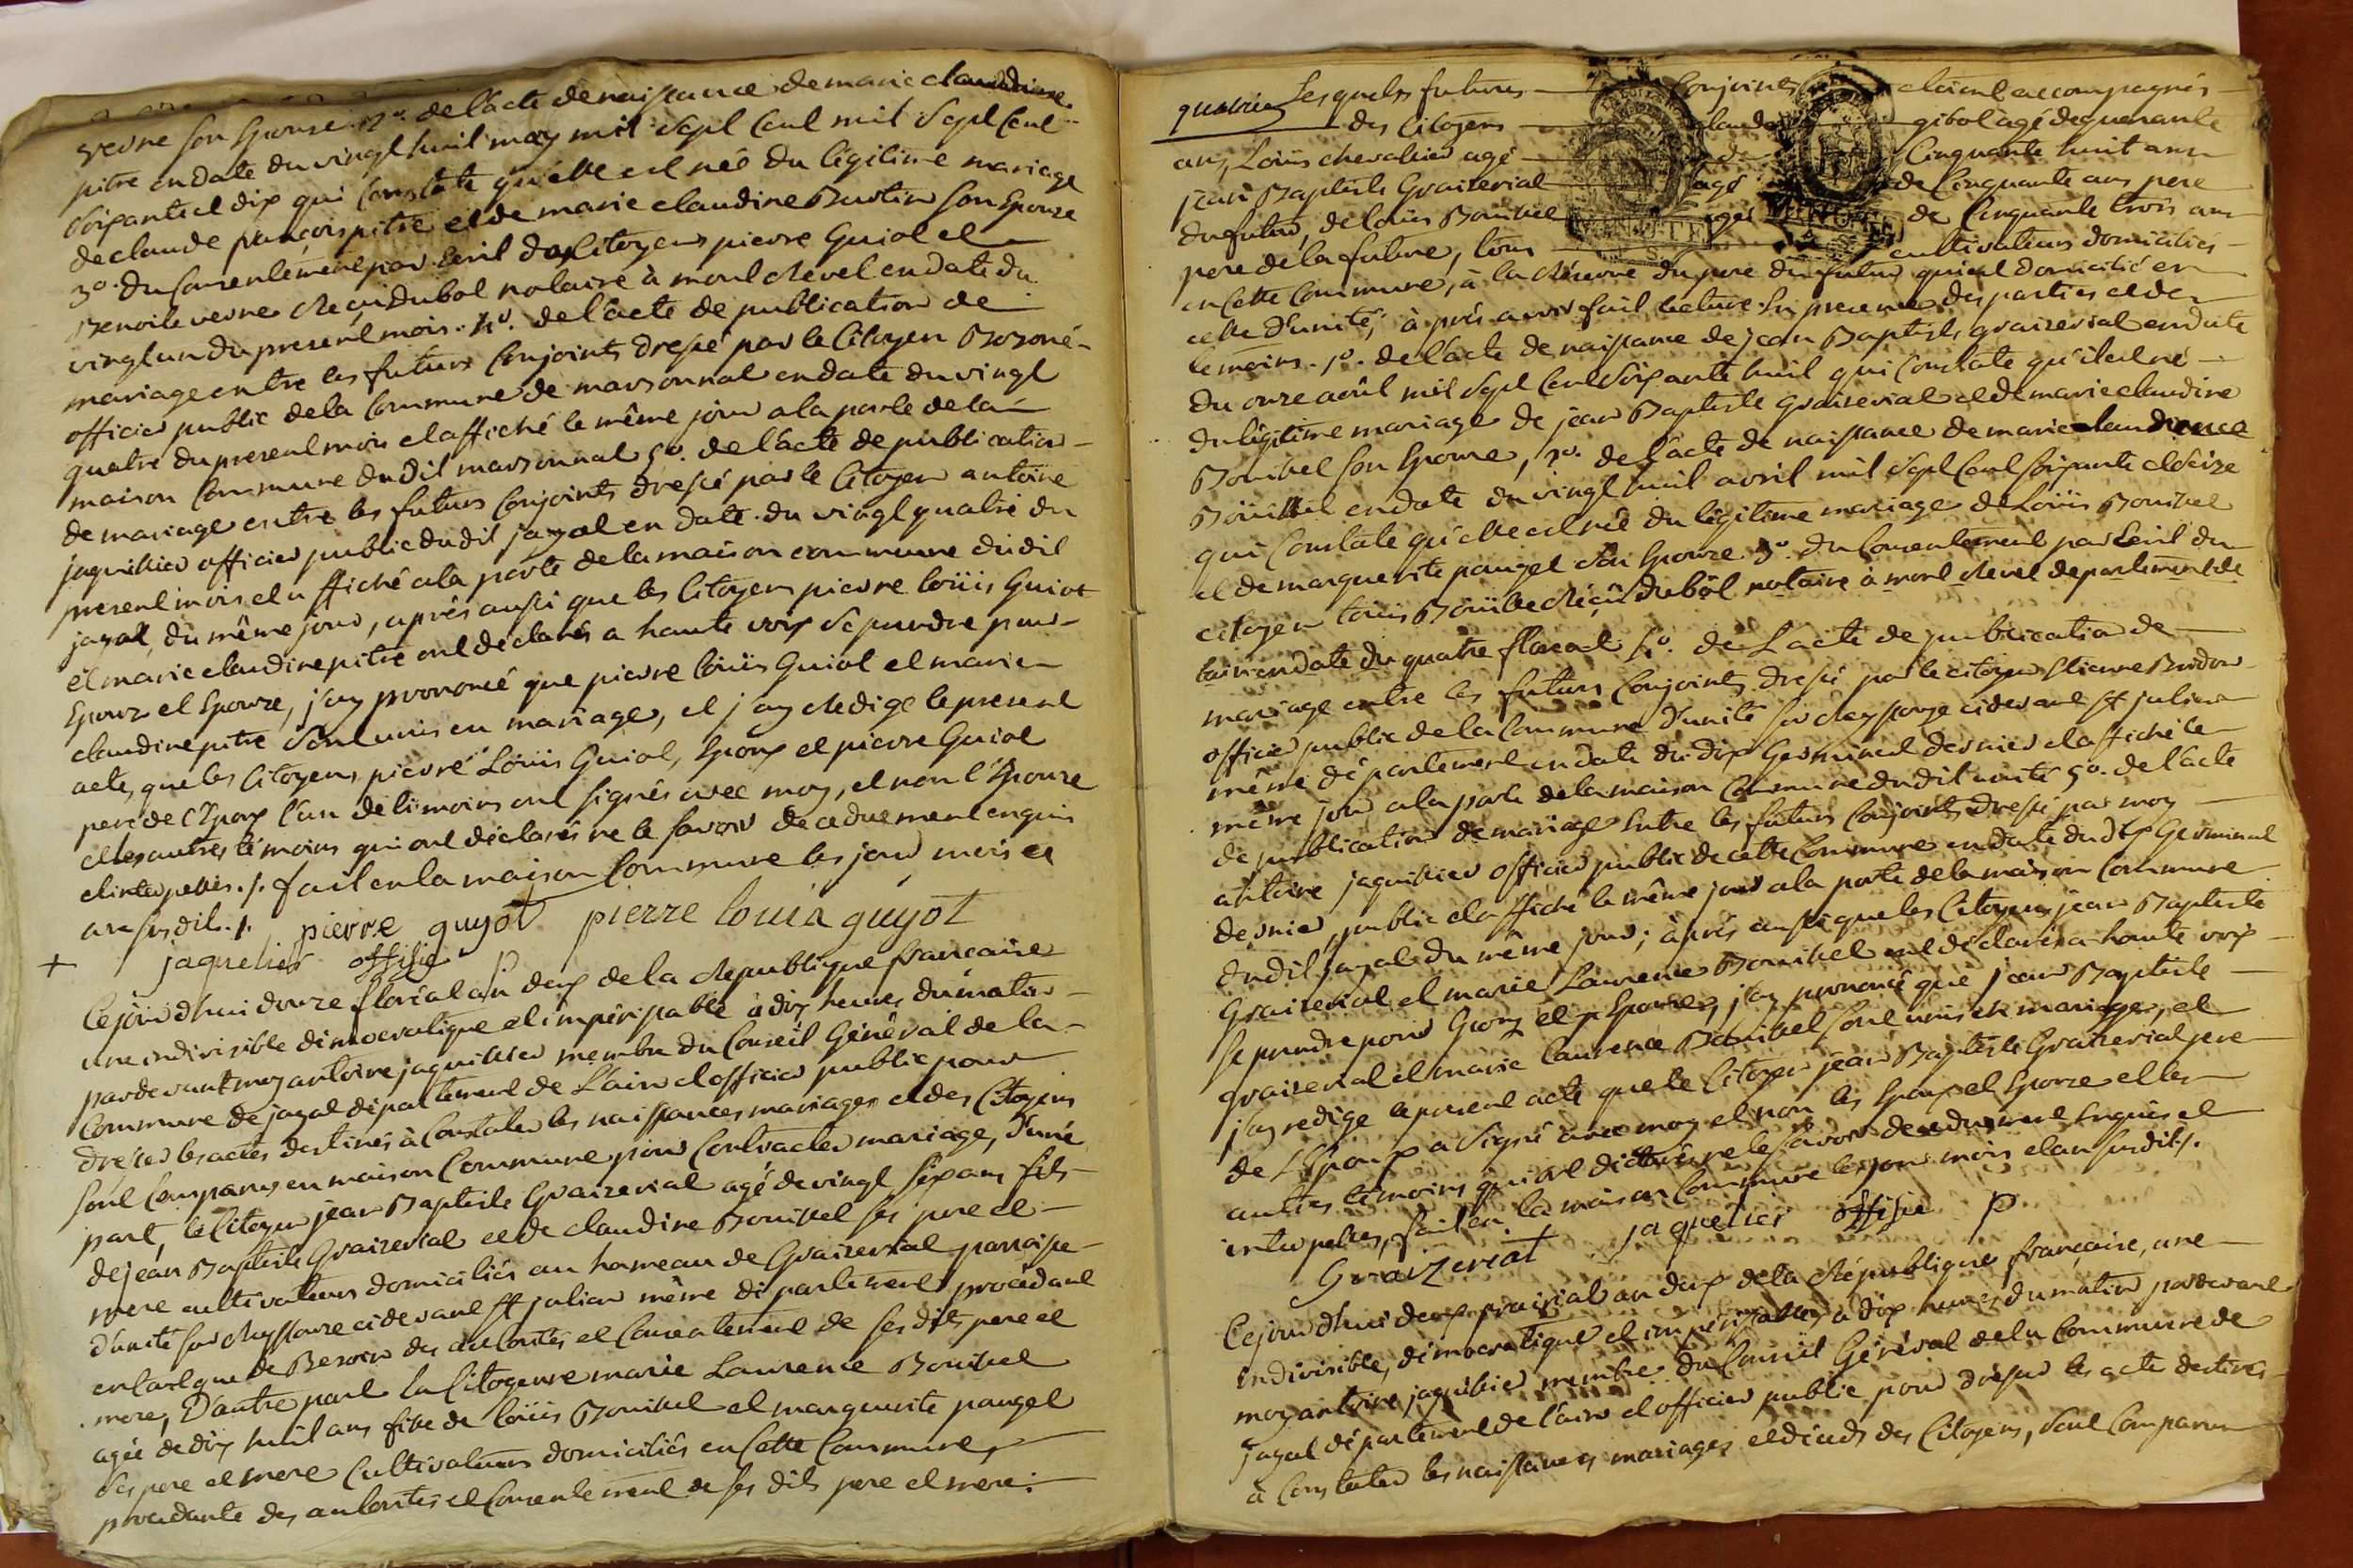 verne son Epouse. 2º. de l'acte de naissance de marie claudine
pitre en date du vingt huit may mil sept Cent mil Sept Cent
Soixante et dix qui Constate qu'elle est née du légitime mariage
de claude françois pitre et de marie claudine Burtin son Epouse
3º. du Consentement par Ecrit des Citoyens pierre Guiot et
Benoite verne Reçu dubot notaire à mont Revel en date du
vingt un du present mois. 4º. de l'acte de publication de
mariage entre les futurs Conjoints dressé par le Citoyen
officier public de la Commune de marsonnat en date du vingt
quatre du present mois et affiché le même jour a la porte de la
maison Commune dudit marsonnat 5º. de l'acte de publication
de mariage entre les futurs Conjoints dressé par le Citoyen antoine
jaquillier officier public dudit jayat en date du vingt quatre du
present mois et affiché a la porte de la maison commune dudit
jayat, du même jour, après aussi que les Citoyens pierre loüis Guiot
et marie claudine pitre ont déclarés a haute voix Se prendre pour
Epoux et Epouse, j'ay prononcé que pierre loüis Guiot et marie
claudine pitre Sont unis en mariage, et j'ay Redigé le present
acte, que les Citoyens pierre Loüis Guiot, Epoux et pierre Guiot
pere de l'Epoux l'un de témoins ont signés avec moy, et non l'Epouse
et les autres témoins qui ont déclarés ne le Savoir de ce duement enquis
et interpellés ./. fait en la maison Commune les jour mois et
an susdit ./. pierre guyot pierre louis guyot
+ jaquelier offisie p
Ce jour d'hui douze floréal an deux de la Republique française
une indivisible démocratique et impérissable à dix heures du matin
pardevant moy antoine jaquillier membre du Conseil Général de la
Commune de jayat département de L'ain et officier public pour
dresser les actes destinés à Constater les naissances mariages et des Citoyens
Sont Comparus en maison Commune pour Contracter mariage, d'une
part, le Citoyen jean Baptiste Graizeriat agé de vingt six ans fils
de jean Baptiste Graizeriat et de claudine Bouibel ses pere et
mere cultivateurs domiciliés au hameau de Graizeriat parroisse
d'unité sur Reyssouze cidevant St julien même département procédant
en tant que de Besoin des autorités et Consentement de ses dits pere et
mere, D'autre part la Citoyenne marie Laurence Bouibel
agée de dix huit ans fille de loüis Bouibel et marguerite pauget
Ses pere et mere Cultivateurs domiciliés en Cette Commune,
procédante des autorités et Consentement de ses dits pere et mere.
Les quels futurs Conjoints étaient accompagnés
des Citoyens claude gibot agé de quarante
ans, Loüis chevallier agé de Cinquante huit ans
jean Baptiste Graizeriat agé de Cinquante ans pere
du futur, de loüis Bouibel agé de Cinquante trois ans
pere de la future, tous cultivateurs domiciliés
en Cette Commune, à la Réserve du pere du futur qui est domicilié en
celle d'unité, après avoir fait lecture En presence des parties et des
témoins. 1º. de l'acte de naissance de jean Baptiste graizeriat en date
du onze aout mil Sept Cent Soixante huit qui Constate qu'il est né
du légitime mariage de jean Baptiste Graizeriat et de marie claudine
Bouibel son Epouse, 2º. de l'acte de naissance de marie
Bouibel en date du vingt huit avril mil Sept Cent soixante et seize
qui Constate qu'elle est née du légitime mariage de Loüis Bouibel
et de marguerite pauget son Epouse 3º. du Consentement par Ecrit du
citoyen loüis Boüibel Reçu dubôt notaire à mont Revel departement de
lain en date du quatre floreal 4º. de L'acte de publication de
mariage entre les futurs Conjoints dressé par le citoyen Etienne Buidon
officier public de la Commune d'unité sur Reyssouze cidevant St julien
même département en date du dix Germinal dernier et affiché le
même jour a la porte de la maison Commune dudit unité 5º. de l'acte
de publication de mariage Entre les futurs Conjoints dressé par moy
antoine jaquillier officier public de cette Commune en date du dix Germinal
dernier, public et affiché le même jour a la porte de la maison Commune
dudit jayat du même jour; après aussi que les Citoyens jean Baptiste
Graizeriat et marie Laurence Bouibel ont déclarés a haute voix
Se prendre pour Epoux et Epouse, j'ay prononcé que jean Baptiste
graizeriat et marie laurence Bouibel Sont unis en mariage, et
j'ay redigé le present acte que le Citoyen jean Baptiste Graizeriat pere
de L'Epoux a Signé avec moy et non les Epoux et Epouse et les
autres témoins qui ont déclarés ne le Savoir de ce duement Enquis et
interpellés, fait en la maison Commune les jour mois et an susdits.
Graizeriat jaquelier offisie p.
Ce jour d'hui deux prairial an deux de la République française, une
indivisible, démocratique et impérissable, à dix heures du matin pardevant
moy antoine jaquillier membre du Conseil Général de la Commune de
jayat département de l'ain et officier public pour dresser les acte destinés
à Constater les naissances mariages et décès des Citoyens, Sont Comparus